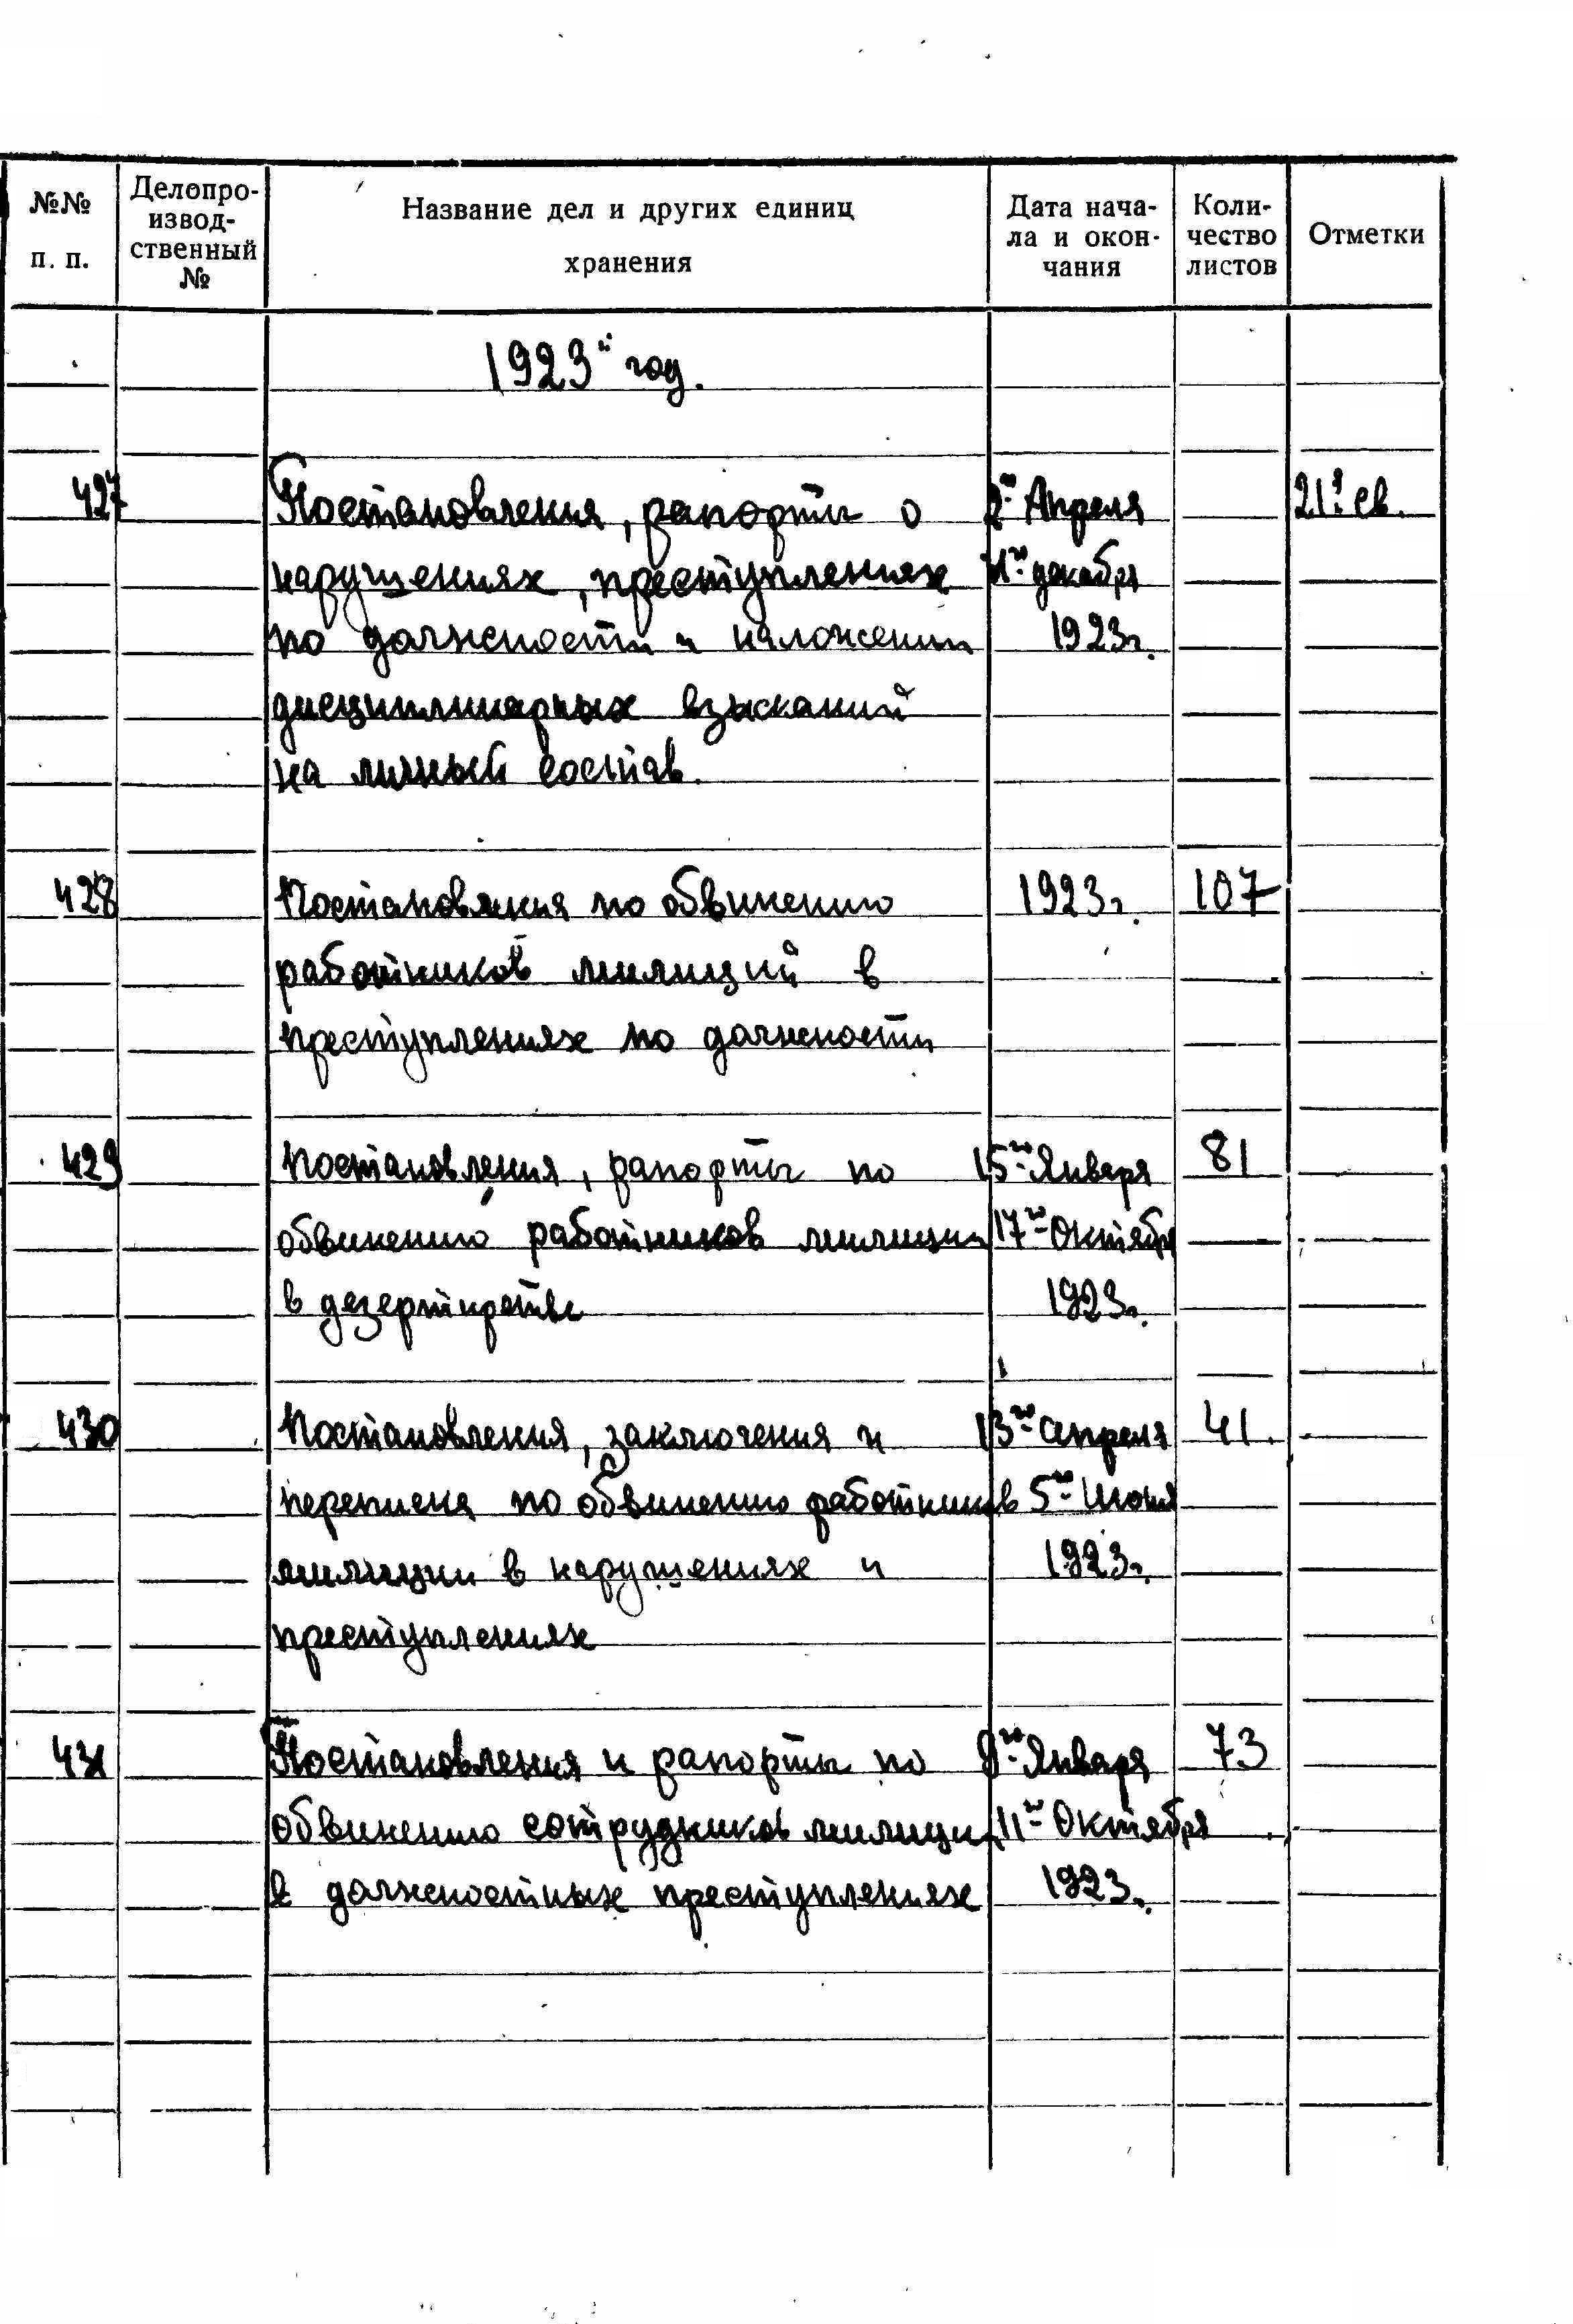 №№ п. п. Делопро-изводственный № Название дел и других единиц хранения Дата нача-ла и окон-чания Коли-чество листов Отметки
1923й год.
427 Постановления, рапорты о 2го Апреля
нарушениях, преступлениях декабря
по должности и наложении 1923г.
дисциплинарных взысканий
на личный состав.
428 Постановления по обвинению 1923г. 107
работников милиций в
преступлениях по должности
429 Постановления, рапорты по 15го Января 81
обвинению работников милиции 17го Октября
в дезертирстве 1923г.
430 Постановления, заключения и 13го апреля 41.
переписка по обвинению работников 5го Июня
милиции в нарушениях и 1923г.
преступлениях
431 Постановления и рапорты по 9го Января 73
обвинению сотрудников милиции 11го Октября
в должностных преступлениях 1923г.